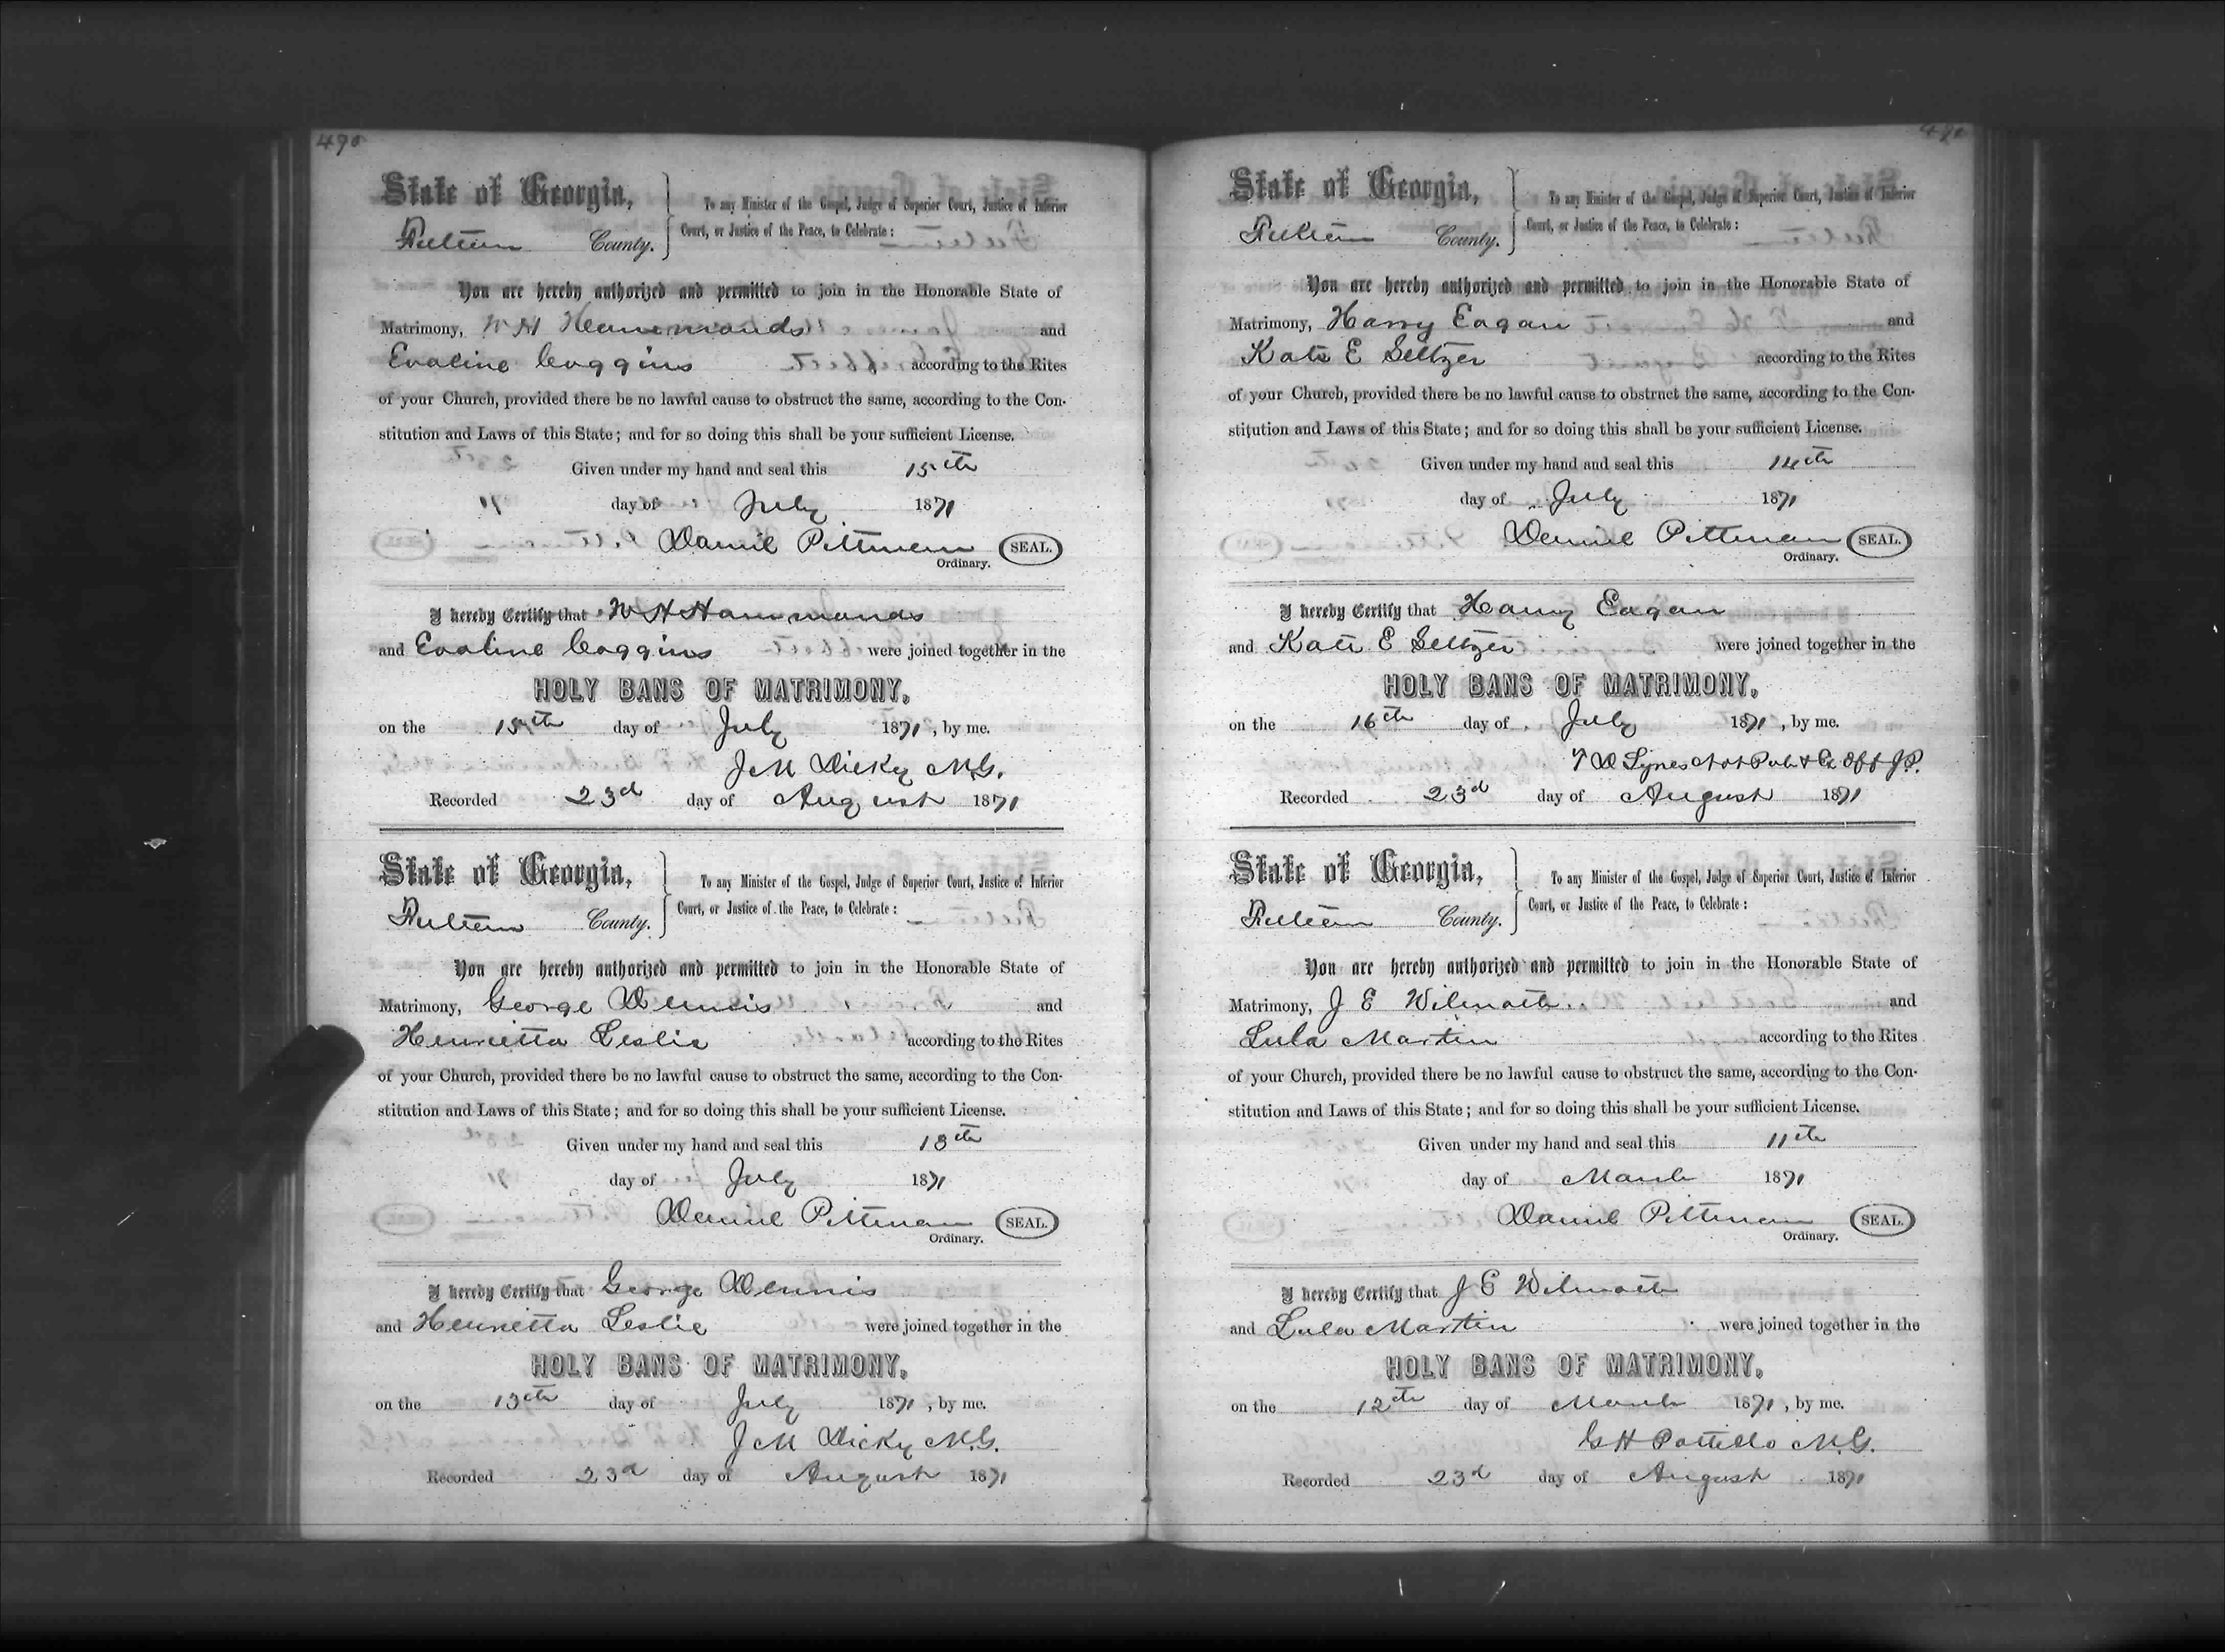 490
State of Georgia,
Fulton County.
To any Minister of the Gospel, Judge of Superior Court, Justice of Inferior
Court, or Justice of the Peace, to Celebrate:
You are hereby authorized and permitted to join in the Honorable State of
Matrimony, W H Hammonds and
Evaline Coggins according to the Rites
of your Church, provided there be no lawful cause to obstruct the same, according to the Con-
stitution and Laws of this State; and for so doing this shall be your sufficient License.
Given under my hand and seal this 15th
day of July 1871
Daniel Pittman SEAL.
Ordinary.
I hereby Certify that W H Hammonds
and Evaline Coggins were joined together in the
HOLY BANS OF MATRIMONY,
on the 15th day of July 1871, by me.
J M Dicky M.G.
Recorded 23d day of August 1871
State of Georgia,
Fulton County.
To any Minister of the Gospel, Judge of Superior Court, Justice of Inferior
Court, or Justice of the Peace, to Celebrate:
You are hereby authorized and permitted to join in the Honorable State of
Matrimony, George Dennis and
Henrietta Leslie according to the Rites
of your Church, provided there be no lawful cause to obstruct the same, according to the Con-
stitution and Laws of this State; and for so doing this shall be your sufficient License.
Given under my hand and seal this 13th
day of July 1871
Daniel Pittman SEAL.
Ordinary.
I hereby Certify that George Dennis
and Henrietta Leslie were joined together in the
HOLY BANS OF MATRIMONY,
on the 13th day of July 1871, by me.
J M Dicky M.G.
Recorded 23d day of August 1871
State of Georgia,
Fulton County.
To any Minister of the Gospel, Judge of Superior Court, Justice of Inferior
Court, or Justice of the Peace, to Celebrate:
You are hereby authorized and permitted to join in the Honorable State of
Matrimony, Harry Eagan and
Kate E Seltzer according to the Rites
of your Church, provided there be no lawful cause to obstruct the same, according to the Con-
stitution and Laws of this State; and for so doing this shall be your sufficient License.
Given under my hand and seal this 14th
day of July 1871
Daniel Pittman SEAL.
Ordinary.
I hereby Certify that Harry Eagan
and Kate E Seltzer were joined together in the
HOLY BANS OF MATRIMONY,
on the 16th day of July 1871, by me.
D Lynes Not Pub & Ex Off J.P.
Recorded 23d day of August 1871
State of Georgia,
Fulton County.
To any Minister of the Gospel, Judge of Superior Court, Justice of Inferior
Court, or Justice of the Peace, to Celebrate:
You are hereby authorized and permitted to join in the Honorable State of
Matrimony, J E Wilmoth and
Lula Martin according to the Rites
of your Church, provided there be no lawful cause to obstruct the same, according to the Con-
stitution and Laws of this State; and for so doing this shall be your sufficient License.
Given under my hand and seal this 11th
day of March 1871
Daniel Pittman SEAL.
Ordinary.
I hereby Certify that J E Wilmoth
and Lula Martin were joined together in the
HOLY BANS OF MATRIMONY,
on the 12th day of March 1871, by me.
G H Pattillo M.G.
Recorded 23d day of August 1871